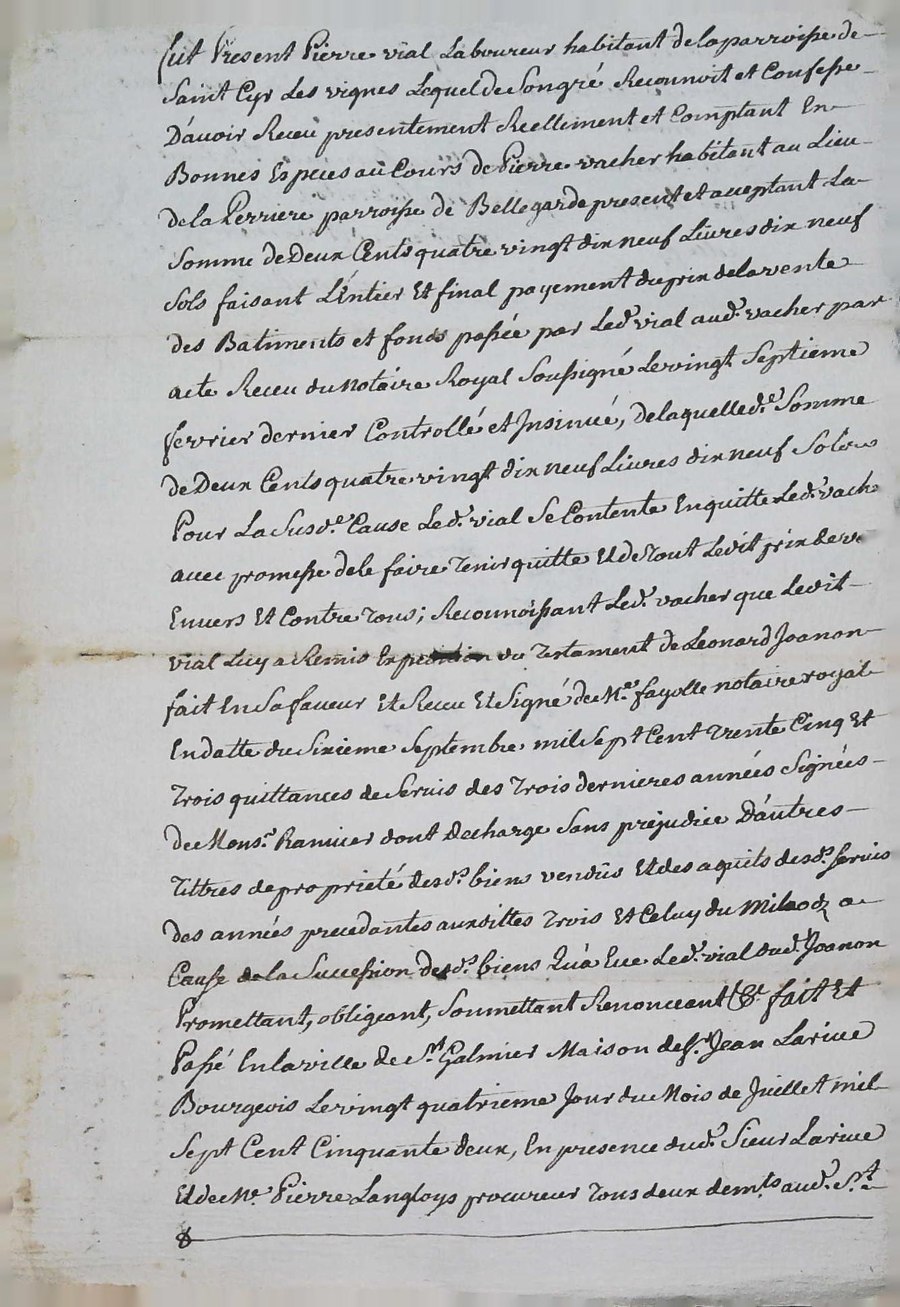 fut Present Pierre vial Laboureur habitant de la parroisse de
Saint Cyr Les vignes Lequel de Son gré Reconnoit et Confesse
D'avoir Receu presentement Reellement et Comptant En
Bonnes Especes au Cours de Pierre vacher habitant au Lieu
de la Perriere parroisse de Bellegarde present et acceptant La
Somme de Deux Cents quatre vingt dix neuf Livres dix neuf
Sols faisant L'Entier Et final payement du prix de la vente
des Batiments et fonds passée par Led. vial aud. vacher par
acte Receu du Notaire Royal Soussigné Le vingt Septieme
fevrier dernier Controllé et Insinué, de laquelle de. Somme
de Deux Cents quatre vingt dix neuf Livres dix neuf Sols
Pour La Susde. Cause Led. vial Se Contente En quitte Led. vach
avec promesse de le faire Tenir quitte Et de Tout Ledit prix de ve
Envers Et Contre Tous; Reconnoissant Led. vacher que Ledit
vial Luy a Remis Expedition du Testament de Leonard Joanon
fait En Sa faveur Et Receu Et Signé de Me. fayolle notaire royal
En datte du Sixieme Septembre mil Sept Cent Trente Cinq Et
Trois quittances de Servis des Trois dernieres années Signées
de Monsr. Ramier dont decharge Sans préjudice D'autres
Tittres de proprieté desds. biens vendûs Et des aquits desds. Servis
des années precedantes auxdittes Trois Et Celuy du a
Cause de la Succession desds. biens Qu'a Eue Led. vial dud. Joanon
Promettant, obligeant, Soumettant Renonceant &c. fait Et
Passé En la ville de St. Galmier Maison de Sr. Jean Larive
Bourgeois Le vingt quatrieme Jour du Mois de Juillet mil
Sept Cent Cinquante deux, En presence dud. Sieur Larive
Et de Me. Pierre Langloys procureur Tous deux demts. aud. St.